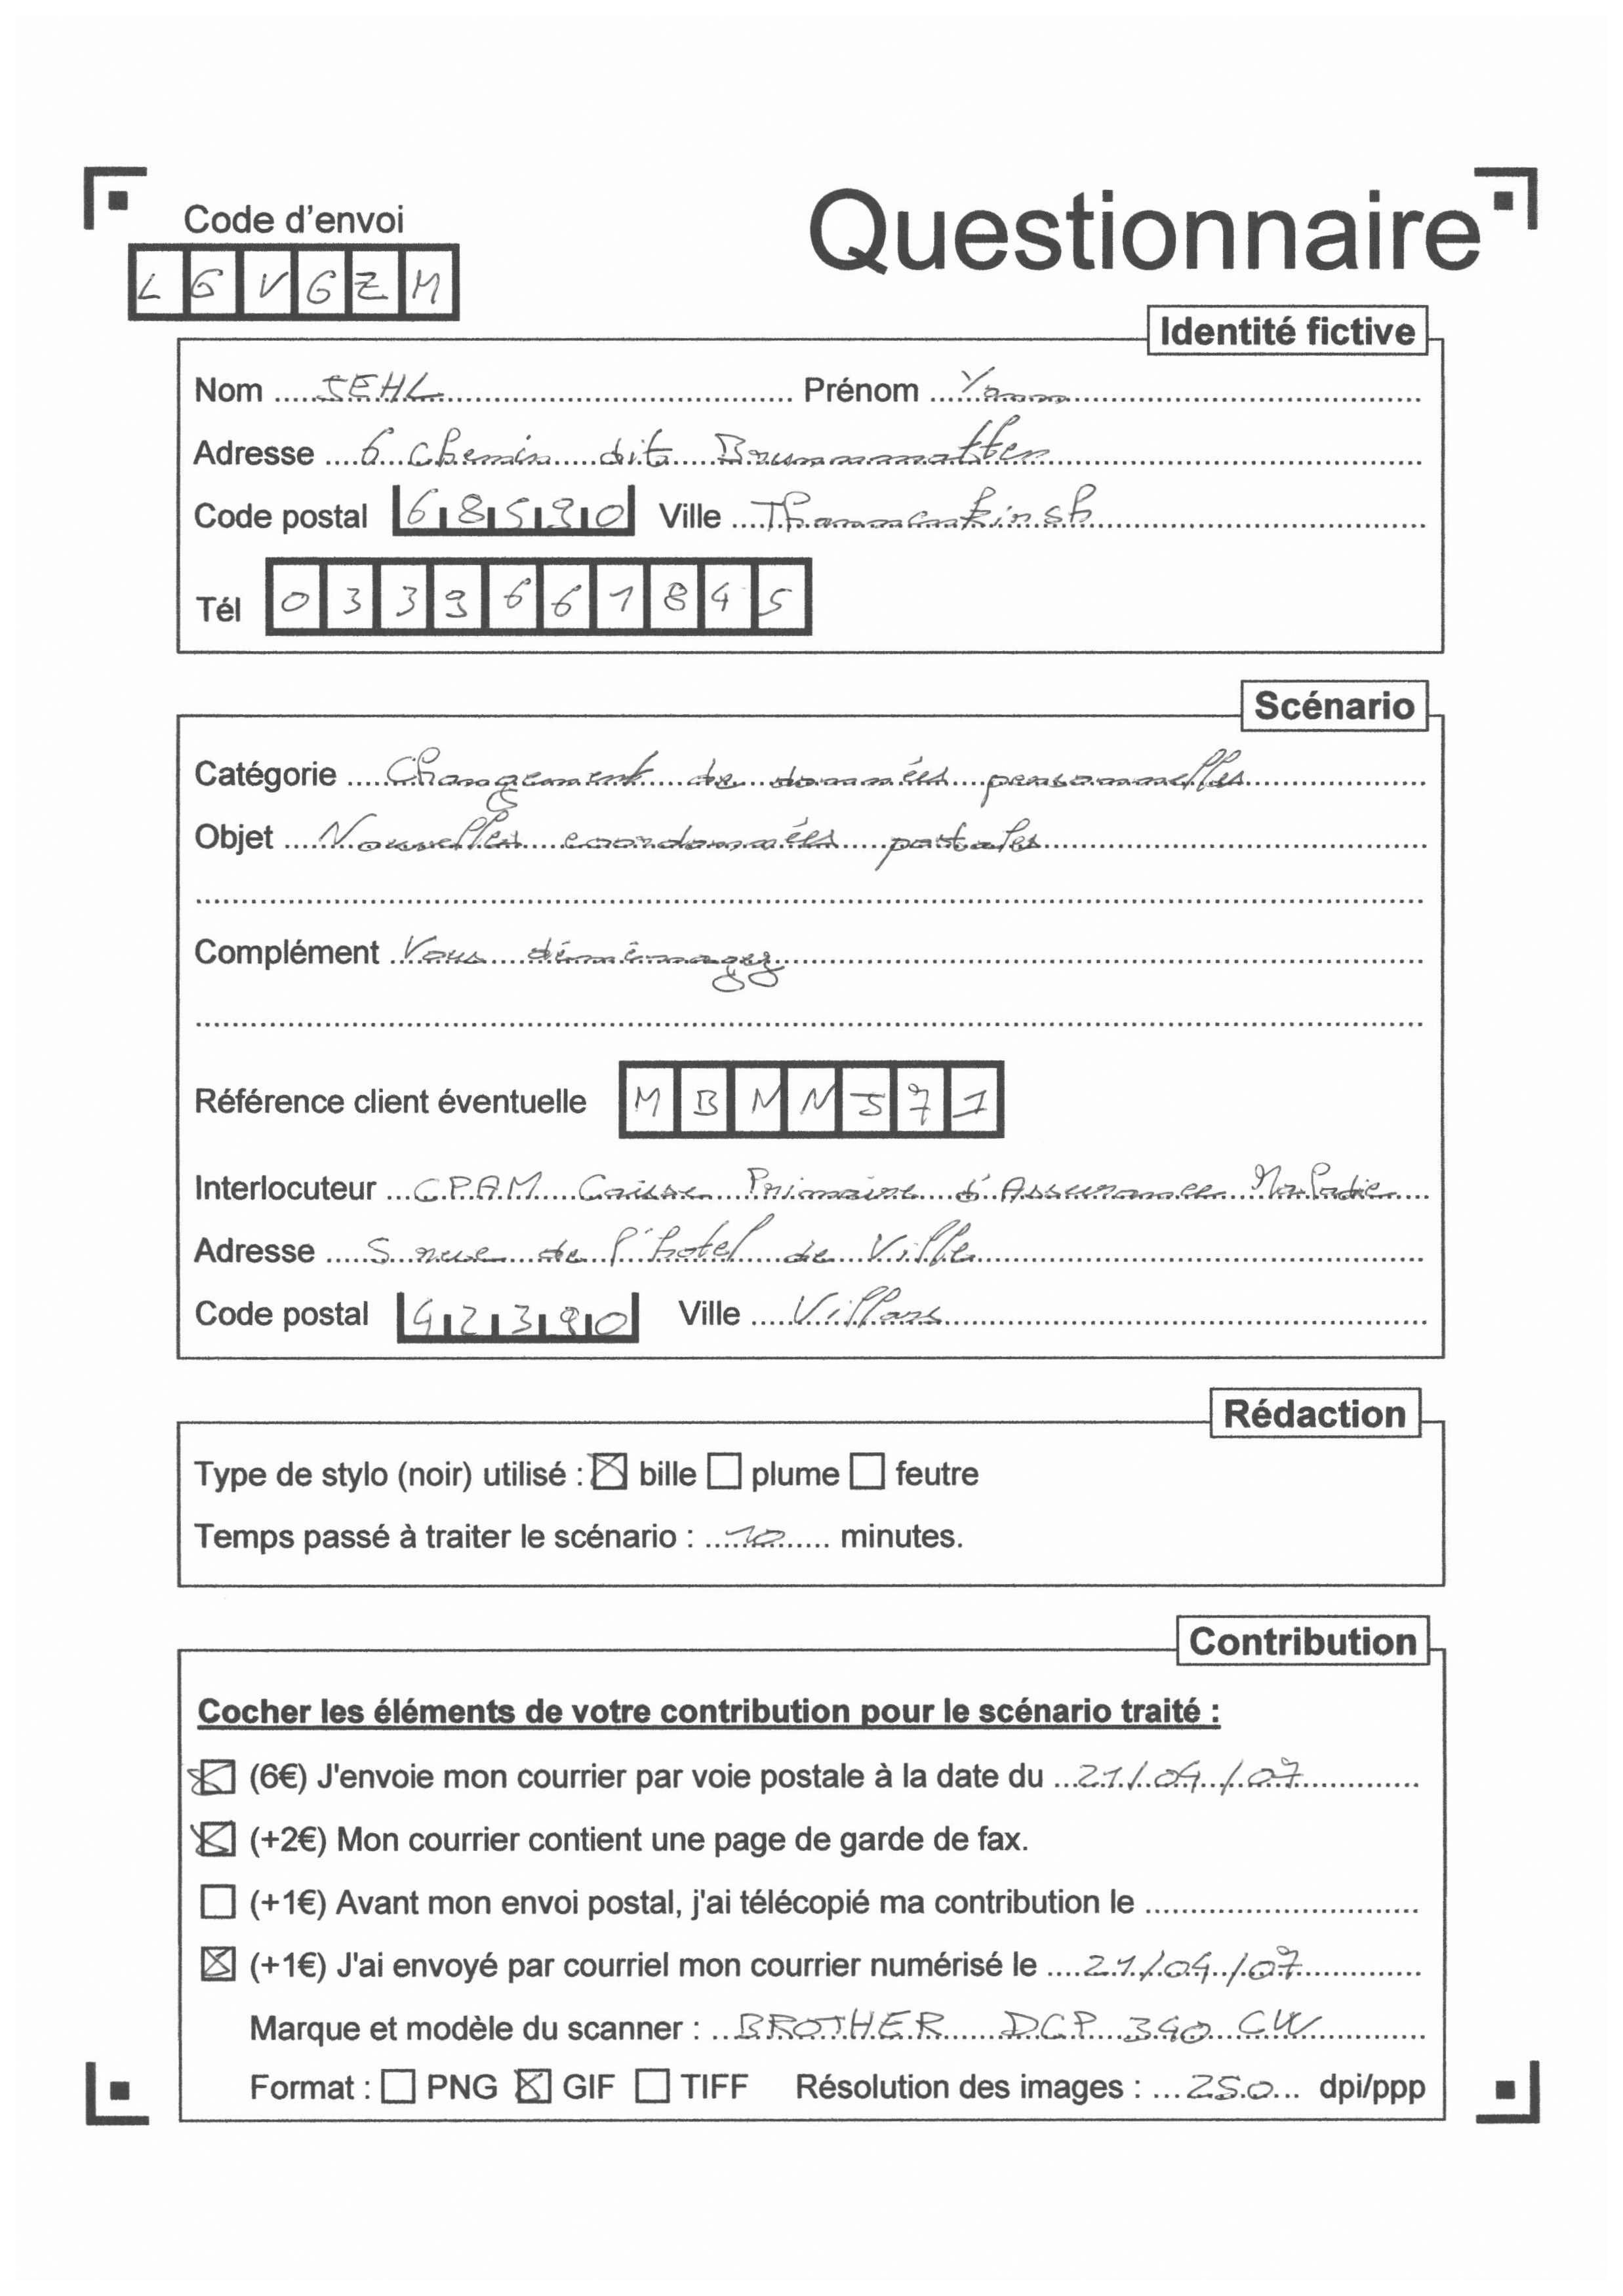 Questionnaire
Code d'envoi
LGVGZM
Identité fictive
Nom SEHL Prénom Yann
Adresse 6 Chemin dit Brunnmatten
Code postal 68590 Ville Thannenkirsh
Tél 0339661845
Scénario
Catégorie Changement de données personnelles
Objet Nouvelles coordonnées postales
Complément Vous déménagez
Référence client éventuelle MBNN571
Interlocuteur CPAM Caisse Primaire d'Assurance Maladie
Adresse 5 rue de l'hotel de Ville
Code postal 42390 Ville Villars
Rédaction
Type de stylo (noir) utilisé : ☒ bille ☐ plume ☐ feutre
Temps passé à traiter le scénario : 10 minutes.
Contribution
Cocher les éléments de votre contribution pour le scénario traité :
☒ (6€) J'envoie mon courrier par voie postale à la date du 21/04/07
☒ (+2€) Mon courrier contient une page de garde de fax.
☐ (+1€) Avant mon envoi postal, j'ai télécopié ma contribution le
☒ (+1€) J'ai envoyé par courriel mon courrier numérisé le 21/04/07
Marque et modèle du scanner : BROTHER DCP 340 CW
Format : ☐ PNG ☒ GIF ☐ TIFF Résolution des images : 250 dpi/ppp